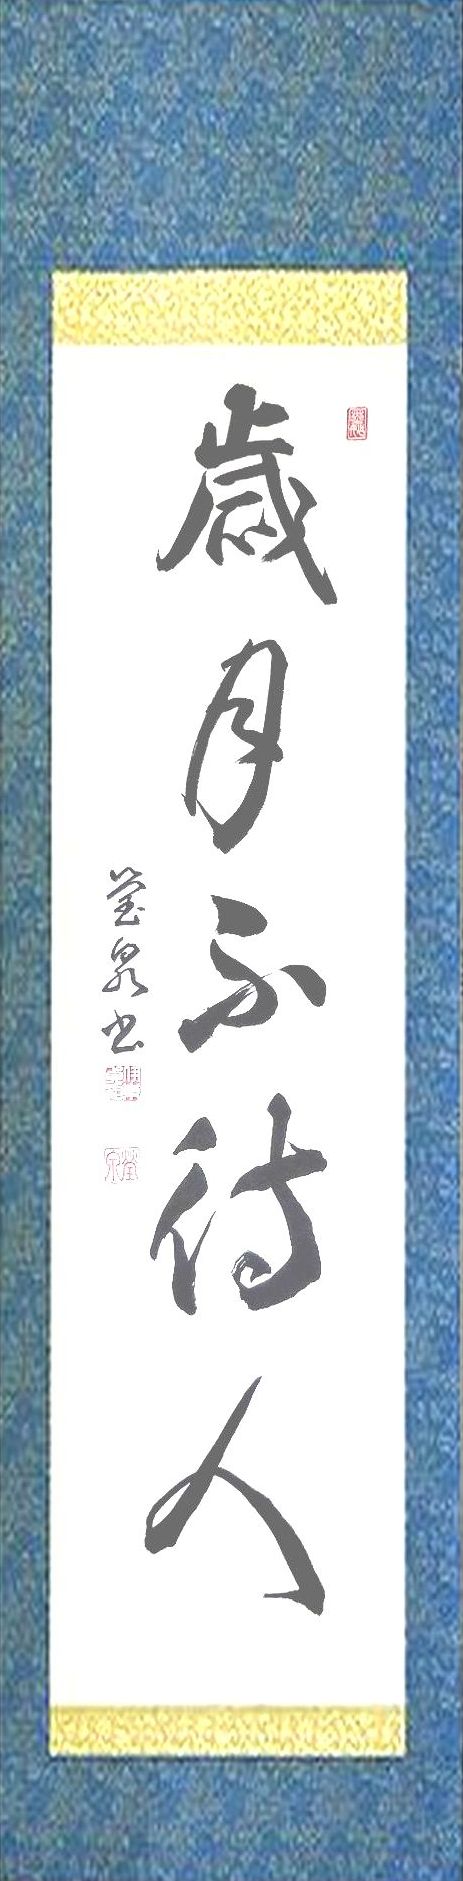 歳月不待人
瑩泉書